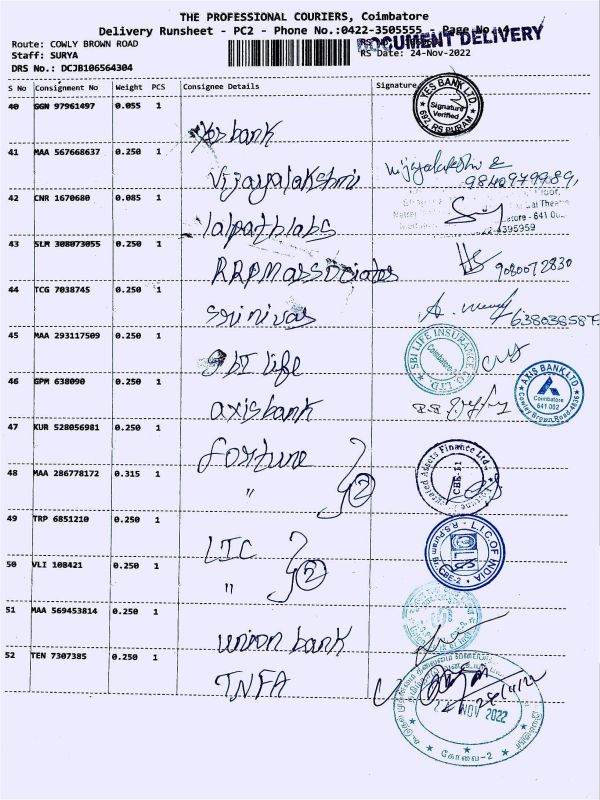 THE PROFESSIONAL COURIERS, Coimbatore
Delivery Runsheet - PC2 - Phone No.:0422-3505555 Page No. 4
DOCUMENT DELIVERY
Route: COWLY BROWN ROAD
Staff: SURYA
RS Date: 24-Nov-2022
DRS No.: DCJB106564304
S No Consignment No Weight PCS Consignee Details Signature
40 GGN 97961497 0.055 1
yes bank
YES BANK LTD.
Signature
Verified
692, RS PURAM
41 MAA 567668637 0.250 1
Vijayalakshmi
9840979989
42 CNR 1670680 0.085 1
lalpathlabs
641 00
4395959
43 SLM 308073055 0.250 1
RRPM associates
9080072830
44 TCG 7038745 0.250 1
Srinivas
638038587
45 MAA 293117509 0.250 1
SBI life
SBI LIFE INSURANCE CO. LTD.
Coimbatore
46 GPM 638090 0.250 1
axis bank
AXIS BANK LTD
Coimbatore
641 002
Cowley Brown Road
47 KUR 528056981 0.250 1
fortune
48 MAA 286778172 0.315 1
" 2
Assets Finance Ltd.
CBE-11
49 TRP 6851210 0.250 1
LIC
L.I.C. OF INDIA
R.S. Puram Br. CBE-2
50 VLI 108421 0.250 1
" 2
51 MAA 569453814 0.250 1
union bank
52 TEN 7307385 0.250 1
TNFA
24/11/22
24 NOV 2022
கோவை-2